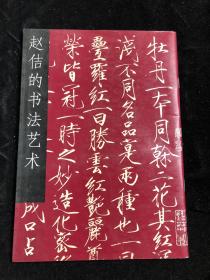 牡丹一本同榦二花其紅深
淺不同名品實兩種也一曰
疊羅紅一曰勝雲紅艷麗尊
榮皆冠一時之妙造化密
成口占
赵佶的书法艺术